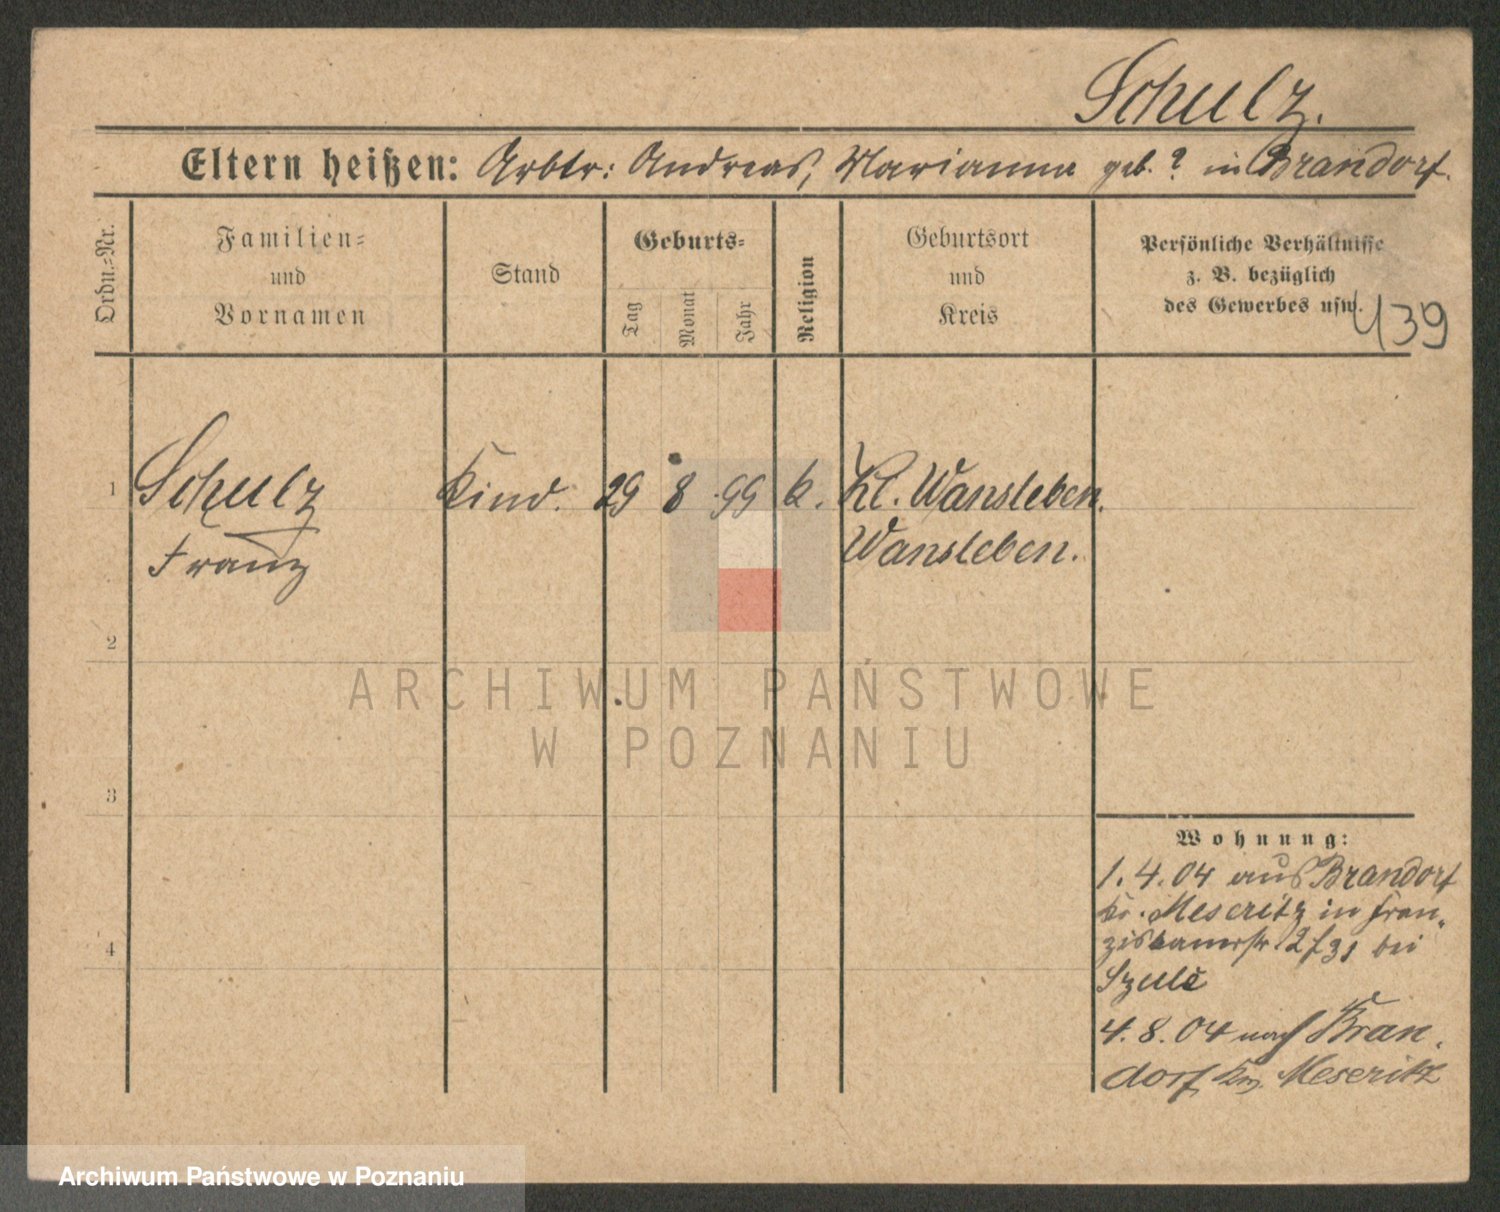 Schulz.
Eltern heißen: Arbtr: Andreas, Marianna geb. ? in Brandorf.
Ordn.-Nr.
Familien-
und
Vornamen
Stand
Geburts-
Tag
Monat
Jahr
Religion
Geburtsort
und
Kreis
Persönliche Verhältnisse
z. B. bezüglich
des Gewerbes usw.
439
1 Schulz Kind. 29 8 99 k. Kl. Wansleben.
Franz Wansleben.
2
3
4
Wohnung:
1. 4. 04 aus Brandorf
Kr. Meseritz in Fran-
ziskanerstr 2/31 bei
Szulc
4. 8. 04 nach Bran-
dorf, Krs. Meseritz
ARCHIWUM PAŃSTWOWE
W POZNANIU
Archiwum Państwowe w Poznaniu